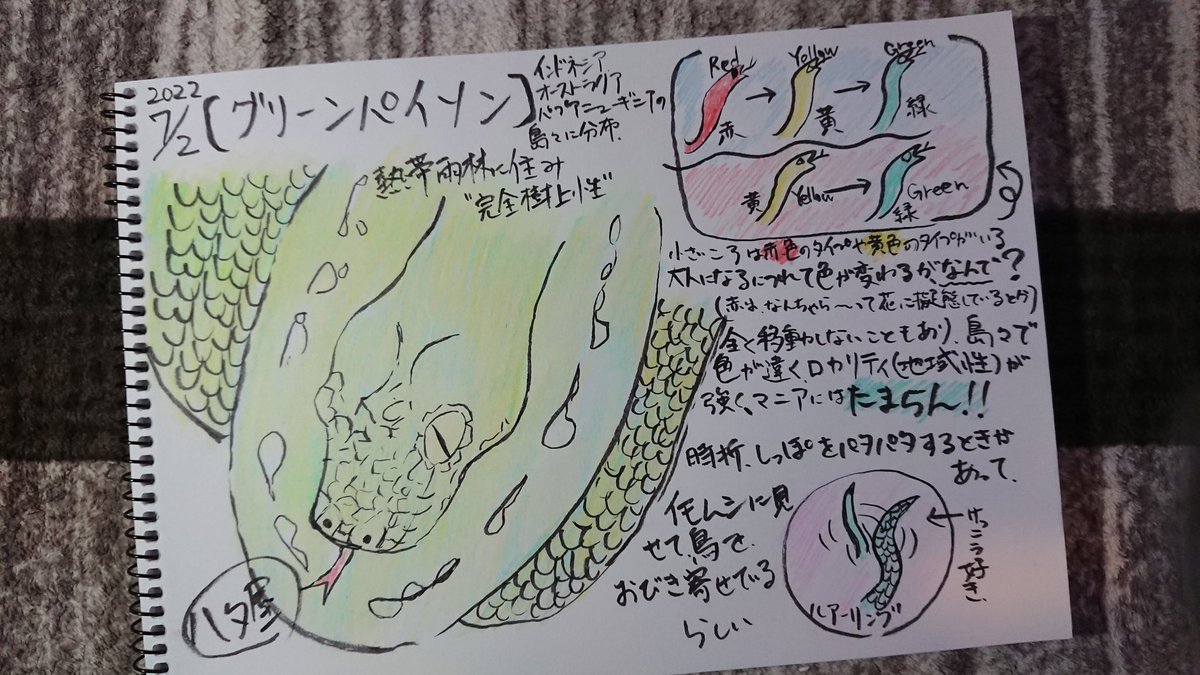 2022
7/2
[グリーンパイソン]
インドネシア
オーストラリア
パプアニューギニアの
島々に分布、
熱帯雨林に住み
"完全樹上性"
Red
Yellow
Green
赤
黄
緑
黄
Yellow
Green
緑
小さいころは赤色のタイプや黄色のタイプがいる
大人になるにつれて色が変わるが、なんで?
(赤は、なんちゃら〜って花に擬態しているとか)
全く移動しないこともあり、島々で
色が違く、ロカリティ(地域性)が
強く、マニアにはたまらん!!
時折、しっぽをパタパタするときが
あって、
イモムシに見
せて、鳥で、
おびき寄せている
らしい
けっこう好き、
ルアーリング
ハタ屋